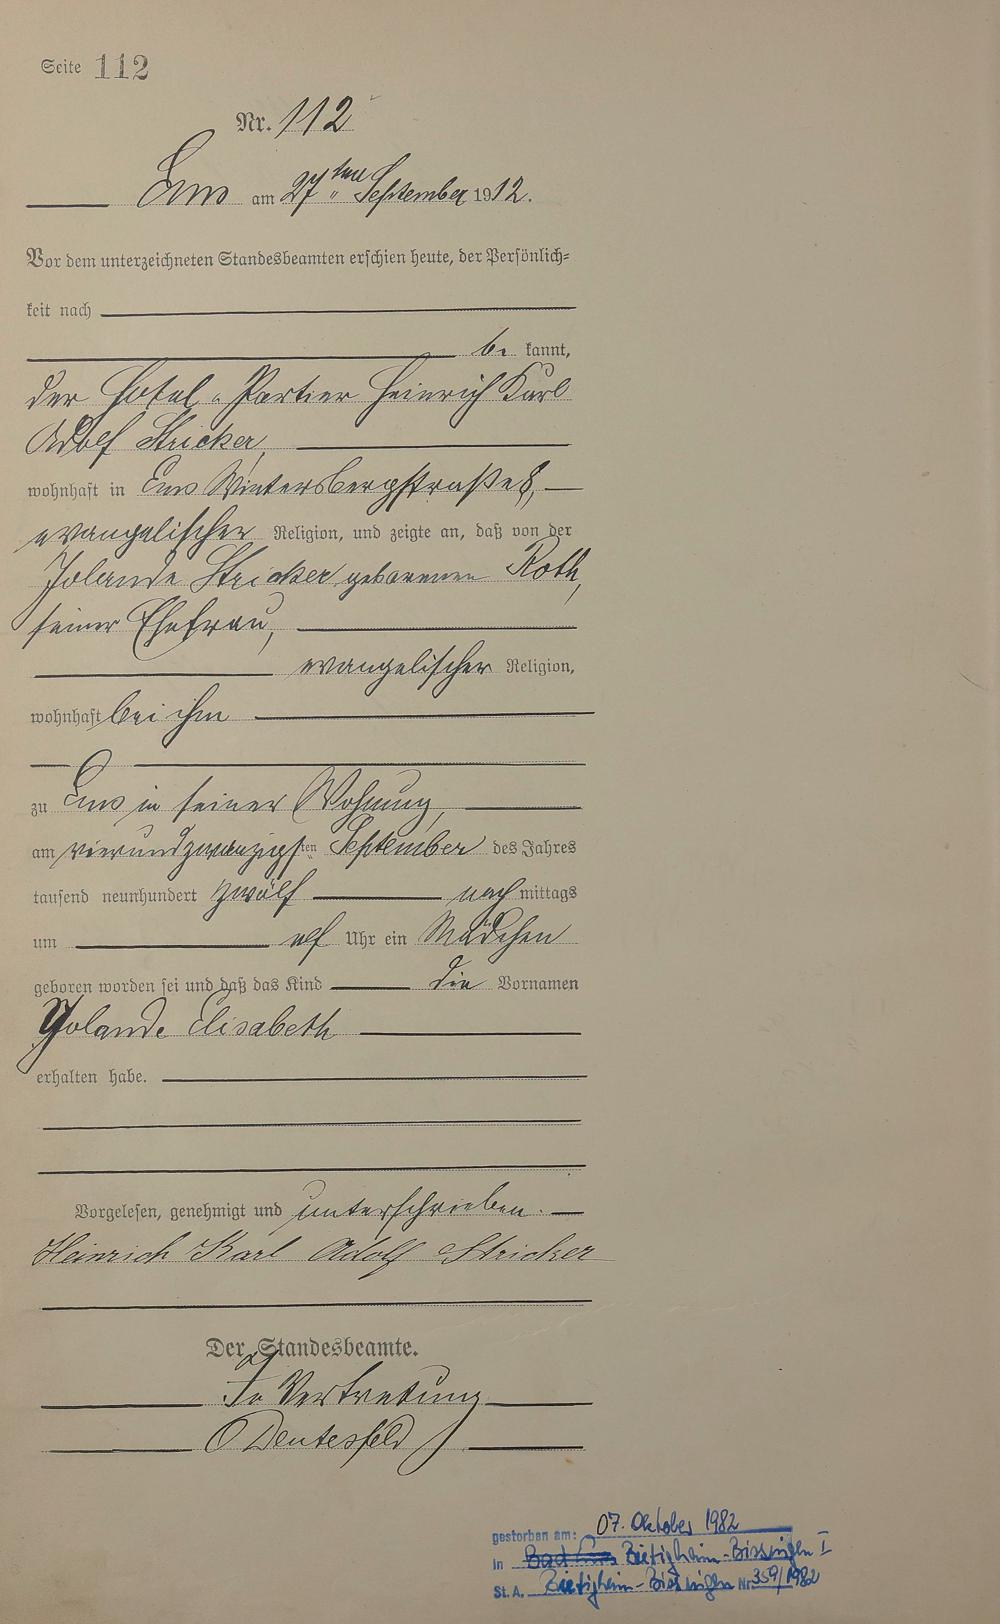 Seite 112
Nr. 112
Ems am 27ten September 1912.
Vor dem unterzeichneten Standesbeamten erschien heute, der Persönlich-
keit nach
be kannt,
der Hotel-Portier Heinrich Karl
Adolf Stricker,
wohnhaft in Ems Wintersbergstraße 8,
evangelischer Religion, und zeigte an, daß von der
Jolande Stricker geborenen Roth,
seiner Ehefrau,
evangelischer Religion,
wohnhaft bei ihm
zu Ems in seiner Wohnung,
am vierundzwanzigsten September des Jahres
tausend neunhundert zwölf nach mittags
um elf Uhr ein Mädchen
geboren worden sei und daß das Kind die Vornamen
Yolande Elisabeth
erhalten habe.
Vorgelesen, genehmigt und unterschrieben.
Heinrich Karl Adolf Stricker
Der Standesbeamte.
In Vertretung
Deutesfeld
gestorben am: 07. Oktober 1982
in Bad Ems Bietigheim-Bissingen I
St. A. Bietigheim-Bissingen Nr 359/1982